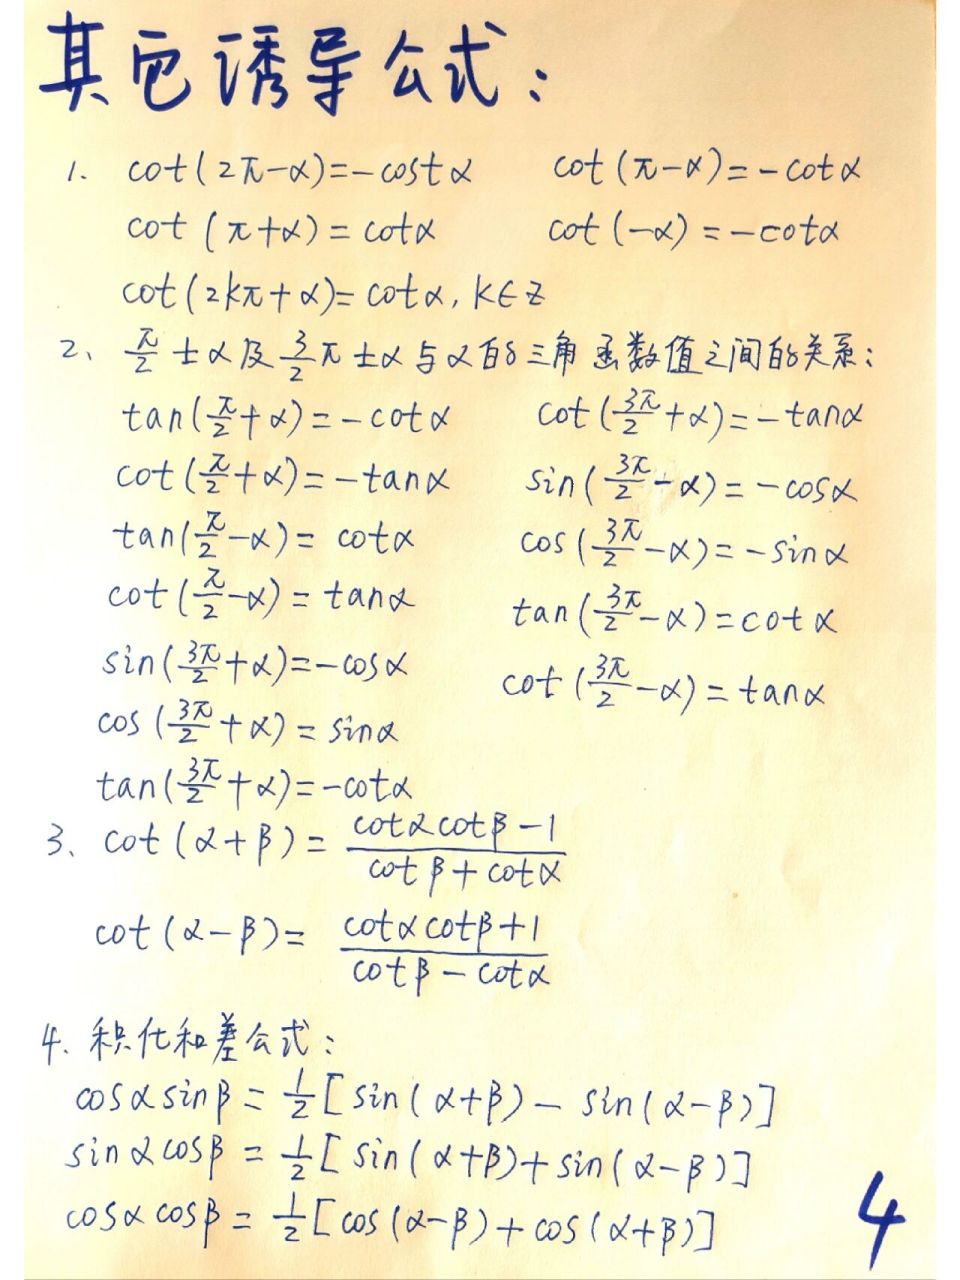 其它诱导公式：
1. cot(2π-α)=-costα cot(π-α)=-cotα
cot(π+α)=cotα cot(-α)=-cotα
cot(2kπ+α)=cotα, k∈Z
2、π/2±α及3/2π±α与α的三角函数值之间的关系：
tan(π/2+α)=-cotα cot(3π/2+α)=-tanα
cot(π/2+α)=-tanα sin(3π/2-α)=-cosα
tan(π/2-α)=cotα cos(3π/2-α)=-sinα
cot(π/2-α)=tanα tan(3π/2-α)=cotα
sin(3π/2+α)=-cosα cot(3π/2-α)=tanα
cos(3π/2+α)=sinα
tan(3π/2+α)=-cotα
3、cot(α+β)=(cotαcotβ-1)/(cotβ+cotα)
cot(α-β)=(cotαcotβ+1)/(cotβ-cotα)
4. 积化和差公式：
cosαsinβ=1/2[sin(α+β)-sin(α-β)]
sinαcosβ=1/2[sin(α+β)+sin(α-β)]
cosαcosβ=1/2[cos(α-β)+cos(α+β)]
4